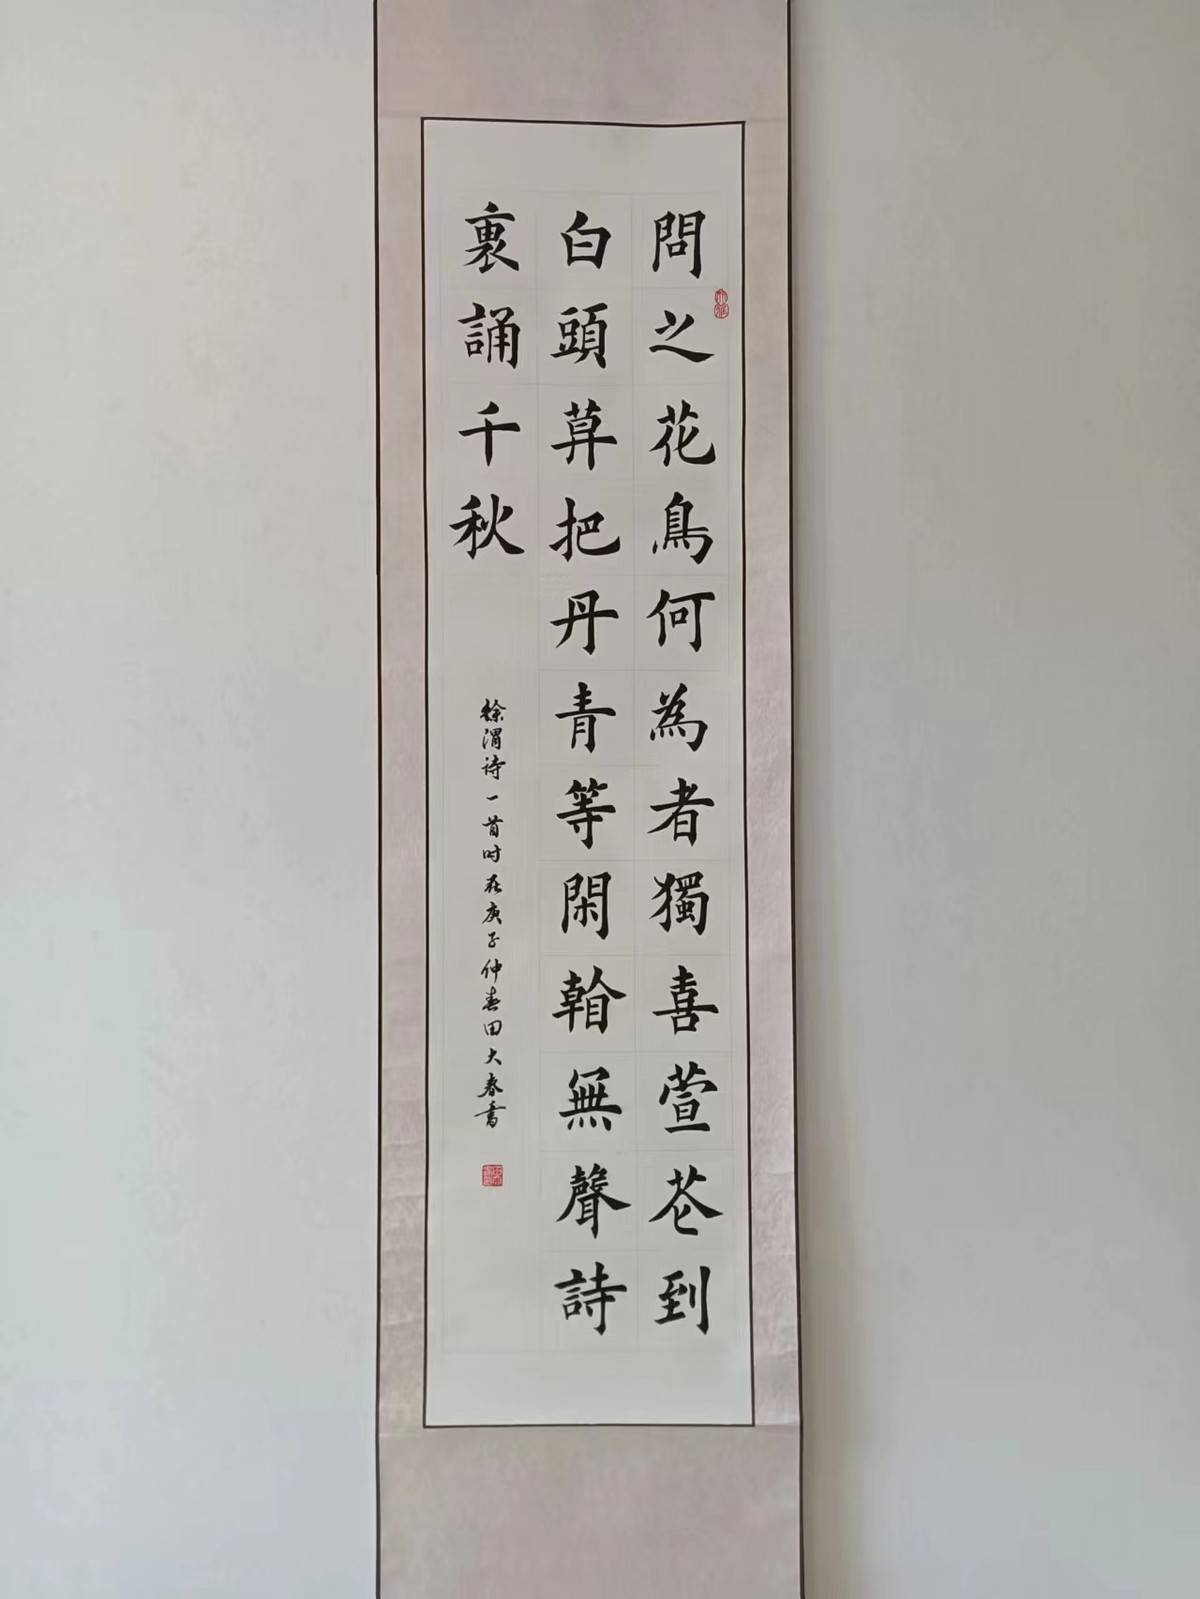 問之花鳥何為者獨喜萱芲到
白頭莫把丹青等閑看無聲詩
裏誦千秋
徐渭诗一首时在庚子仲春田大春書